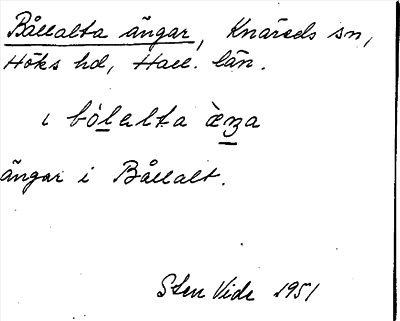 Bållalta ängar, Knäreds sn,
Höks hd, Hall. län.
i bólalta æ̀ʒa
ängar i Bållalt.
Sten Vide 1951